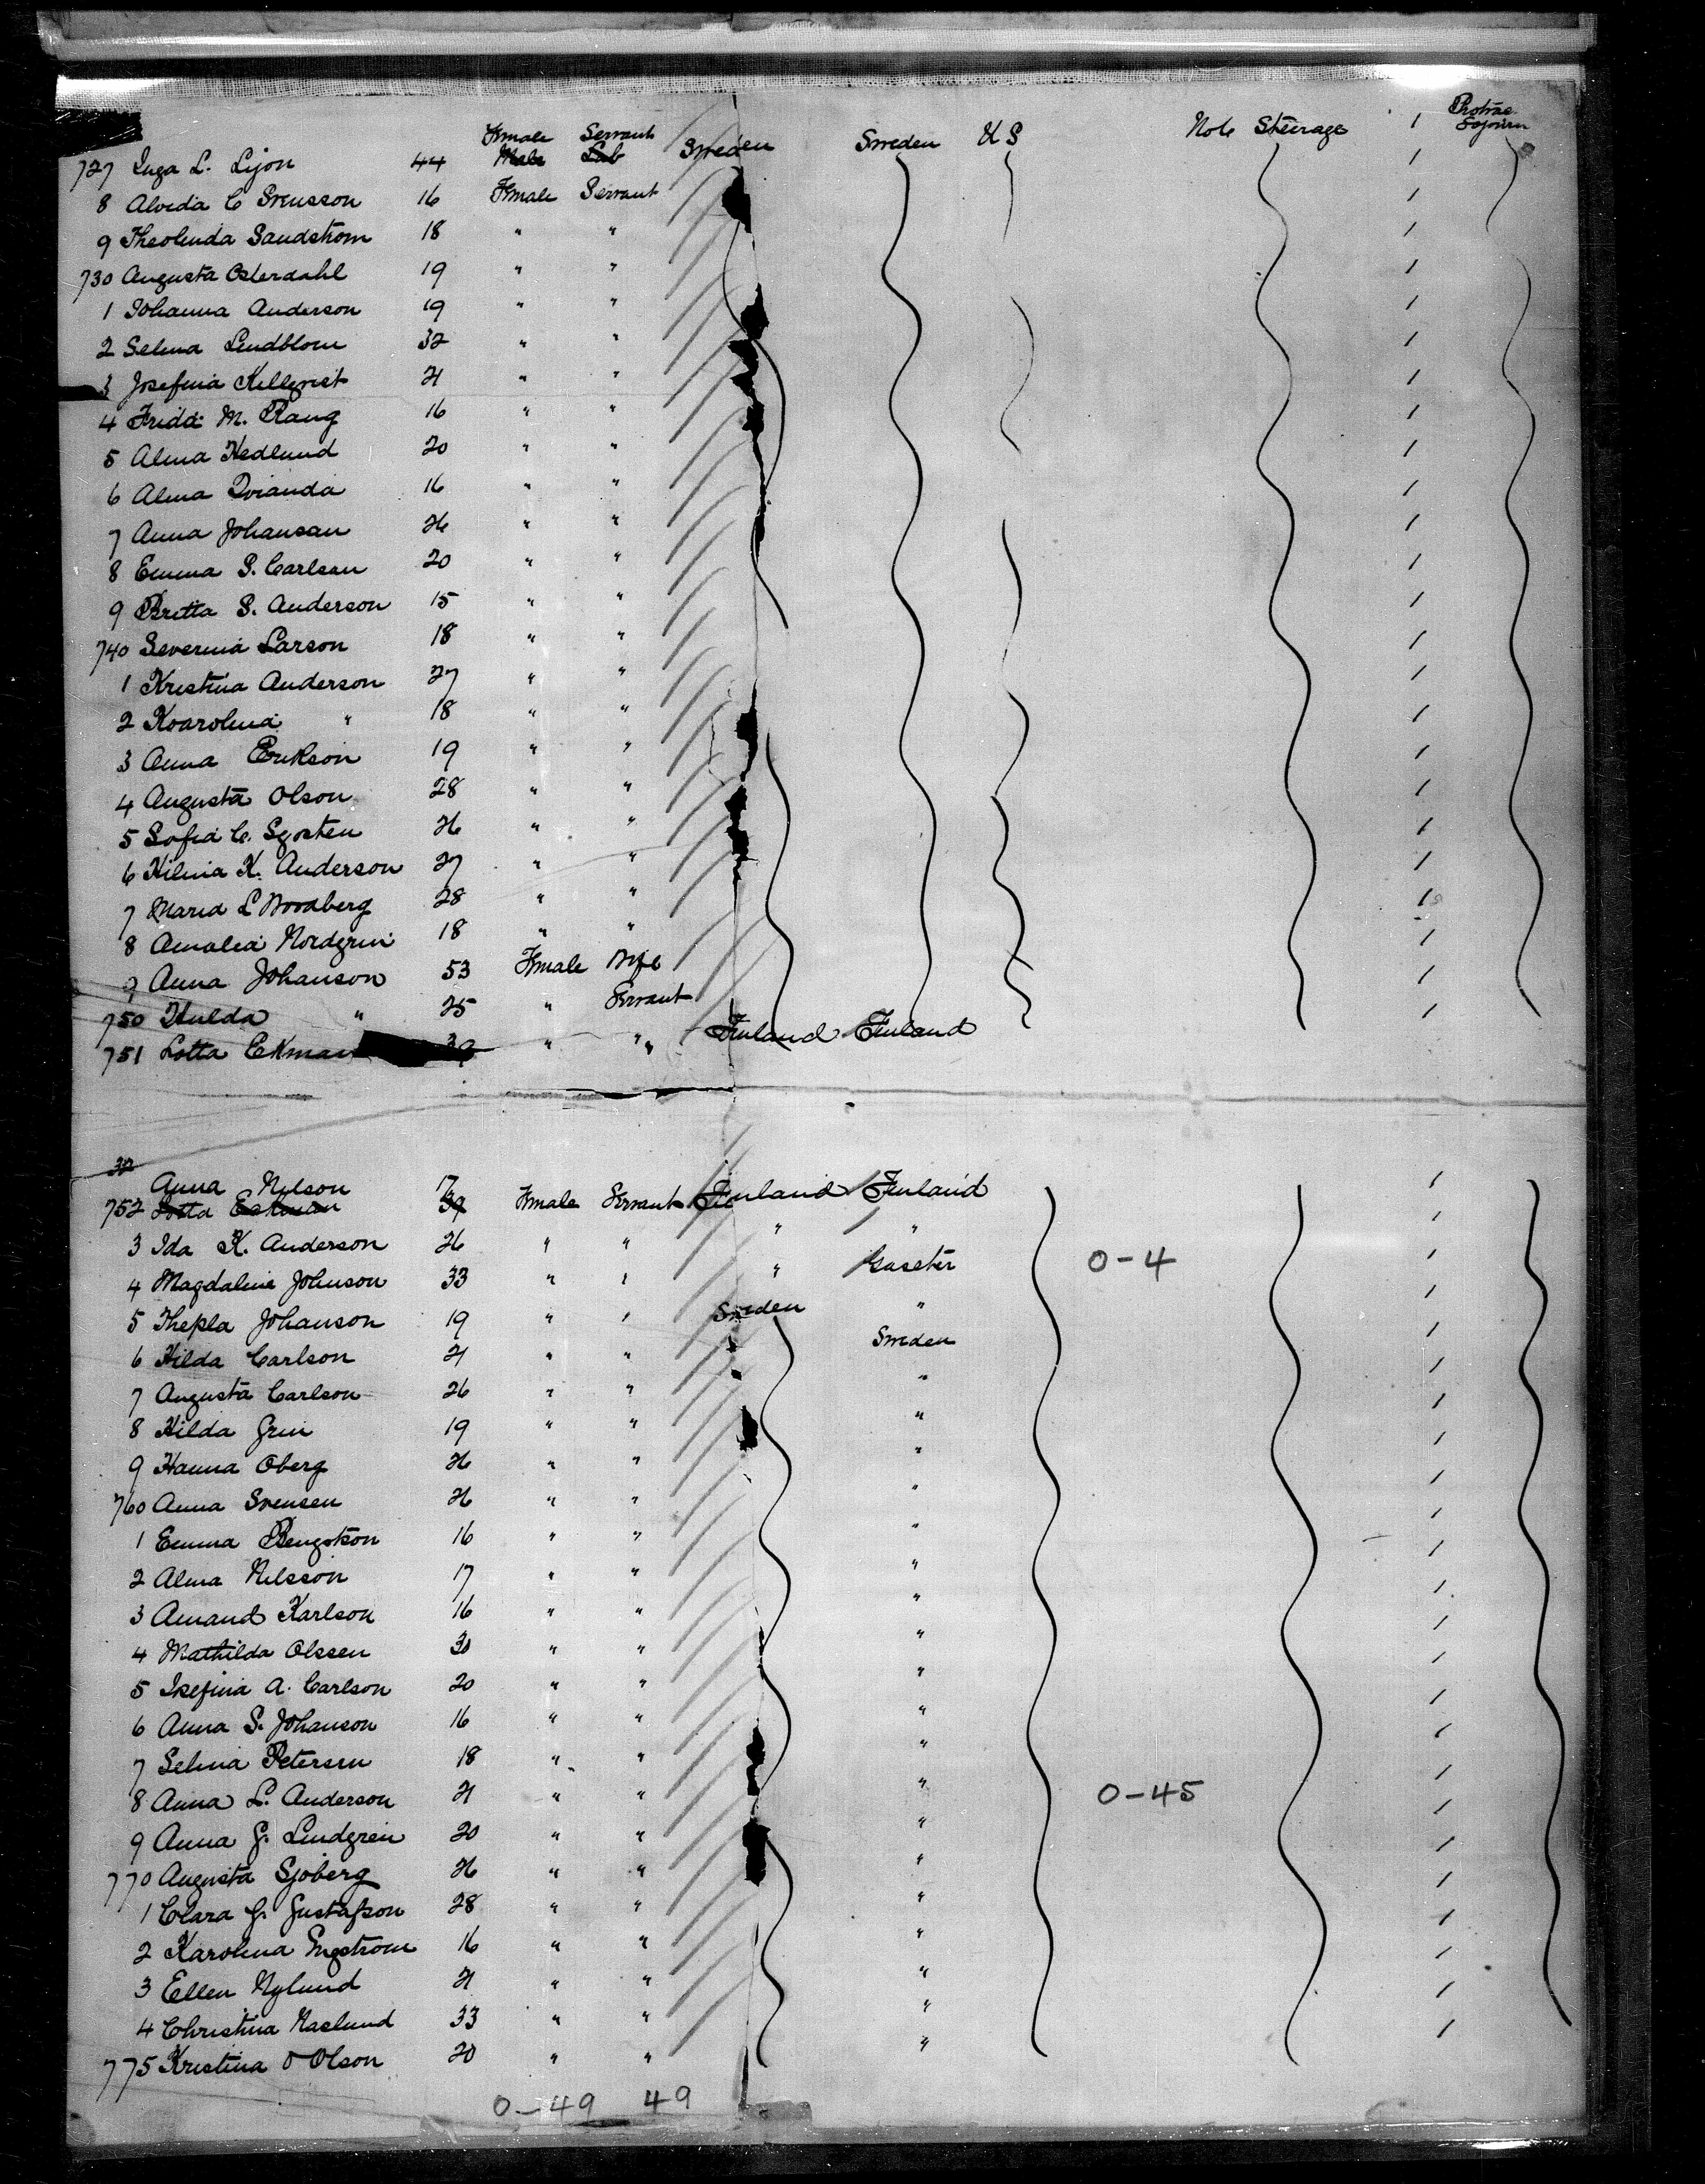 Female Servant Protrac
727 Inga L. Lijon 44 Male Lab Sweden Sweden U S Not Steerage 1 Sojourn
8 Alveda C Svensson 16 Female Servant
9 Theolinda Sandstrom 18 " "
730 Augusta Osterdahl 19 " "
1 Johanna Anderson 19 " "
2 Selma Lindblom 32 " "
3 Josefina Killgvist 21 " "
4 Frida M. Rang 16 " "
5 Alma Hedlund 20 " "
6 Alma 16 " "
7 Anna Johansan 26 " "
8 Emma S. Carlson 20 " "
9 Britta S. Anderson 15 " "
740 Severina Larson 18 " "
1 Kristina Anderson 27 " "
2 Koarolina " 18 " "
3 Anna Erikson 19 " "
4 Augusta Olson 28 " "
5 Sofia C. 26 " "
6 Hilma K. Anderson 27 " "
7 Maria L Woodberg 28 " "
8 Amalia Nordgrin 18 " "
9 Anna Johanson 53 Female Wife
750 Hulda " 25 " Servant
751 Lotta Ekman 39 " " Finland Finland
32
Anna Nilson 17
752 Lotta Eckman 39 Female Servant Finland Finland
3 Ida K. Anderson 26 " " " "
4 Magdaline Johnson 33 " " " 0-4
5 Thekla Johanson 19 " " Sweden "
6 Hilda Carlson 21 " " Sweden
7 Augusta Carlson 26 " " "
8 Hilda Grin 19 " " "
9 Hanna Oberg 26 " " "
760 Anna Svensen 26 " " "
1 Emma Bengtson 16 " " "
2 Alma Nilsson 17 " " "
3 Amand Karlson 16 " " "
4 Mathilda Olssen 30 " " "
5 Josefina A. Carlson 20 " " "
6 Anna S. Johanson 16 " " "
7 Selma Petersen 18 " " "
8 Anna L. Anderson 21 " " " 0-45
9 Anna G. Lindgren 20 " " "
770 Augusta Sjoberg 26 " " "
1 Clara G. Gustafson 28 " " "
2 Karolina Engstrom 16 " " "
3 Ellen Nylund 21 " " "
4 Christina Naslund 33 " " "
775 Kristina O Olson 20 " " "
0-49 49